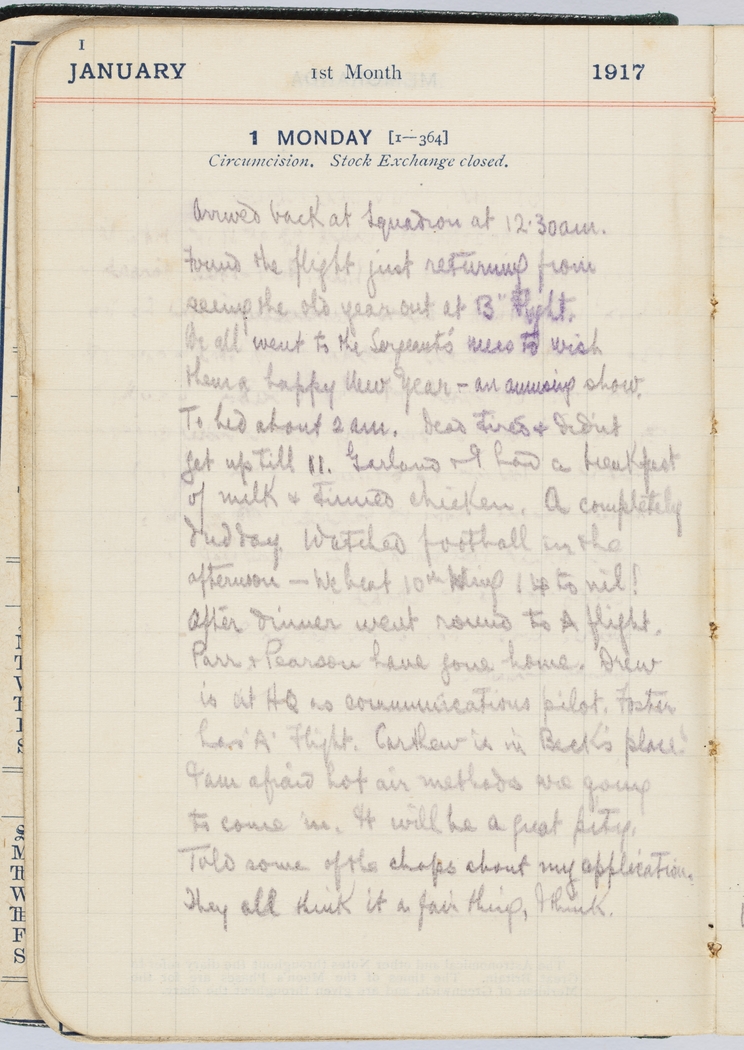 1
JANUARY 1st Month 1917
1 MONDAY [1—364]
Circumcision. Stock Exchange closed.
Arrived back at Squadron at 12.30am.
Found the flight just returning from
seeing the old year out at B" flight.
We all went to the Sergeants' mess to wish
them a happy New Year – an amusing show.
To bed about 2 am. Dead tired & didn't
get up till 11. Garland & I had a breakfast
of milk & tinned chicken. A completely
dud day. Watched football in the
afternoon – We beat 10th Wing 14 to nil!
After dinner went round to A flight.
Parr & Pearson have gone home. Drew
is at HQ as communications pilot. Foster
has 'A' Flight. Carthew is in Beck's place!
I am afraid hot air methods are going
to come in. It will be a great pity.
Told some of the chaps about my application.
They all think it a fair thing, I think.